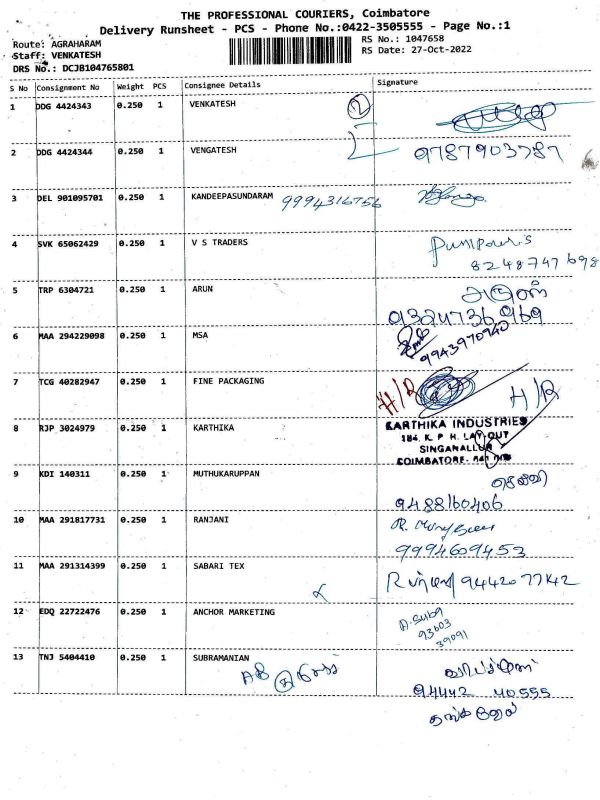 THE PROFESSIONAL COURIERS, Coimbatore
Delivery Runsheet - PCS - Phone No.:0422-3505555 - Page No.:1
Route: AGRAHARAM
RS No.: 1047658
Staff: VENKATESH
RS Date: 27-Oct-2022
DRS No.: DCJB104765801
S No Consignment No Weight PCS Consignee Details Signature
1 DDG 4424343 0.250 1 VENKATESH 2
2 DDG 4424344 0.250 1 VENGATESH 9787903787
3 DEL 901095701 0.250 1 KANDEEPASUNDARAM 9994316756
4 SVK 65062429 0.250 1 V S TRADERS
8248747698
5 TRP 6304721 0.250 1 ARUN அருண்
6 MAA 294229098 0.250 1 MSA 9943970940
7 TCG 40282947 0.250 1 FINE PACKAGING H/R H/R
8 RJP 3024979 0.250 1 KARTHIKA KARTHIKA INDUSTRIES
184, K. P. H. LAY-OUT
SINGANALLUR
COIMBATORE-
9 KDI 140311 0.250 1 MUTHUKARUPPAN செல்வி
9488160406
10 MAA 291817731 0.250 1 RANJANI
9994609453
11 MAA 291314399 0.250 1 SABARI TEX 9442077142
12 EDQ 22722476 0.250 1 ANCHOR MARKETING
93603
39091
13 TNJ 5404410 0.250 1 SUBRAMANIAN
94442 40555